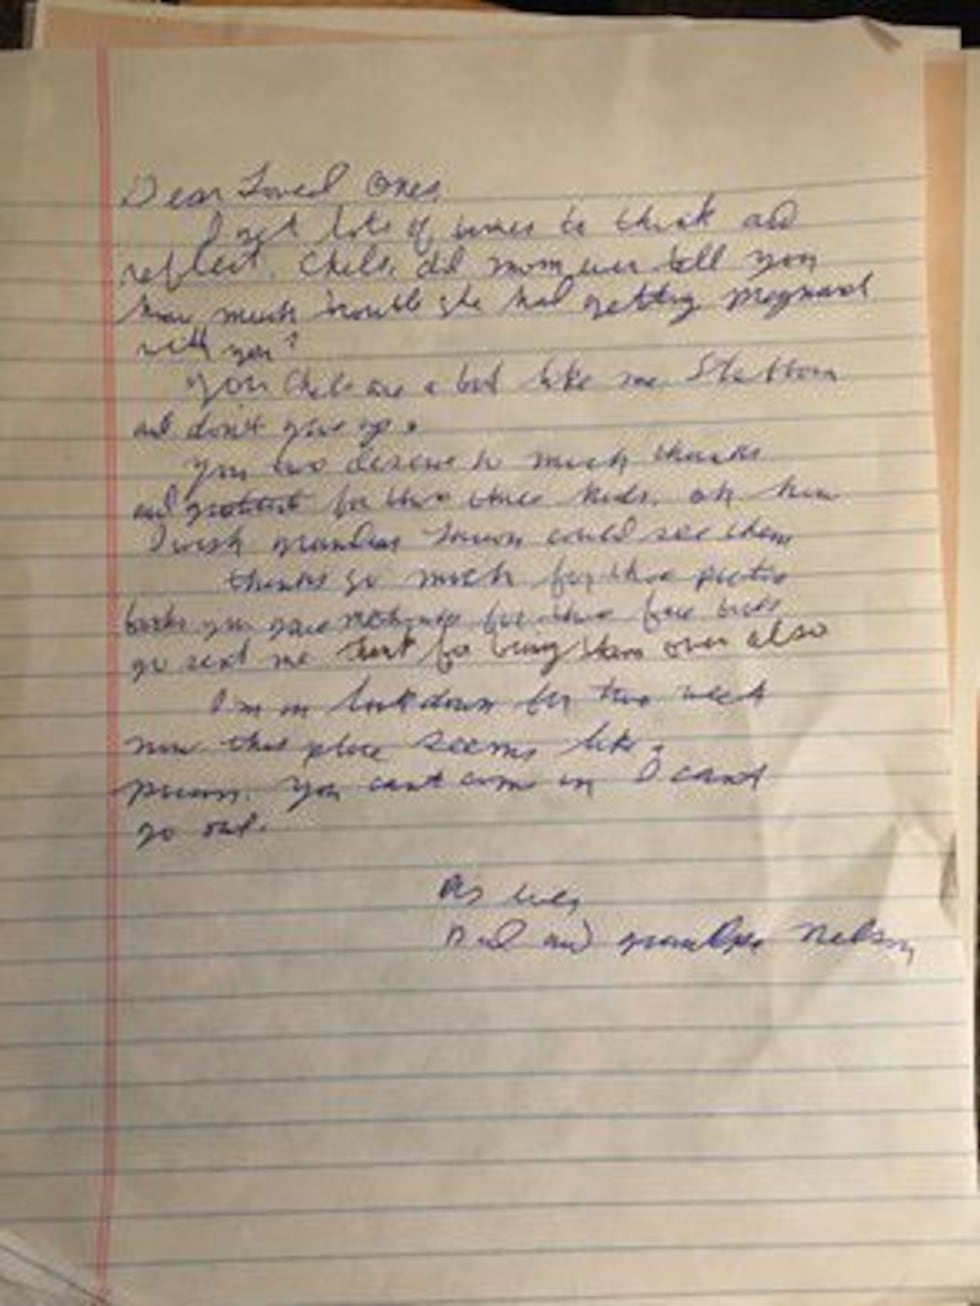 Dear Loved Ones,
I get lots of times to think and
reflect. Chels, did mom ever tell you
how much trouble she had getting pregnant
with you?
You Chels are a bit like me Stubborn
and don't give up.
You two deserve so much thanks
and for three kids. oh how
I wish grandma could see them
thanks so much for those
books you gave for those
go sent me for bring them over also
I'm on lockdown for two week
now this place seems like a
prison. You cant come in I cant
go out.
As ever,
Dad and grandpa Nelson